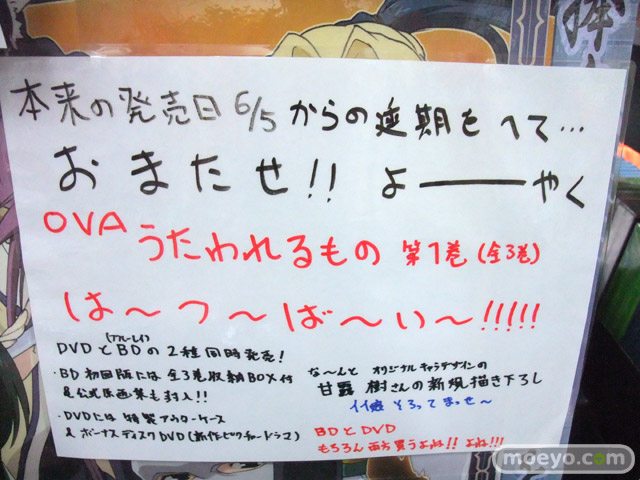 本来の発売日 6/5 からの延期をへて…
おまたせ!! よーーやく
OVA うたわれるもの 第1巻(全3巻)
は～つ～ば～い～!!!!!
DVDとBD(ブルーレイ)の2種同時発売!
・BD初回版には全3巻収納BOX付
&公式原画集も封入!!
・DVDには 特製アウターケース
&ボーナスディスクDVD(新作ピクチャードラマ)
な～んと オリジナルキャラデザインの
甘露 樹さんの新規描き下ろし
イイ娘 そろってまっせ～
BDとDVD
もちろん両方買うよね!! よね!!!
moeyo.com